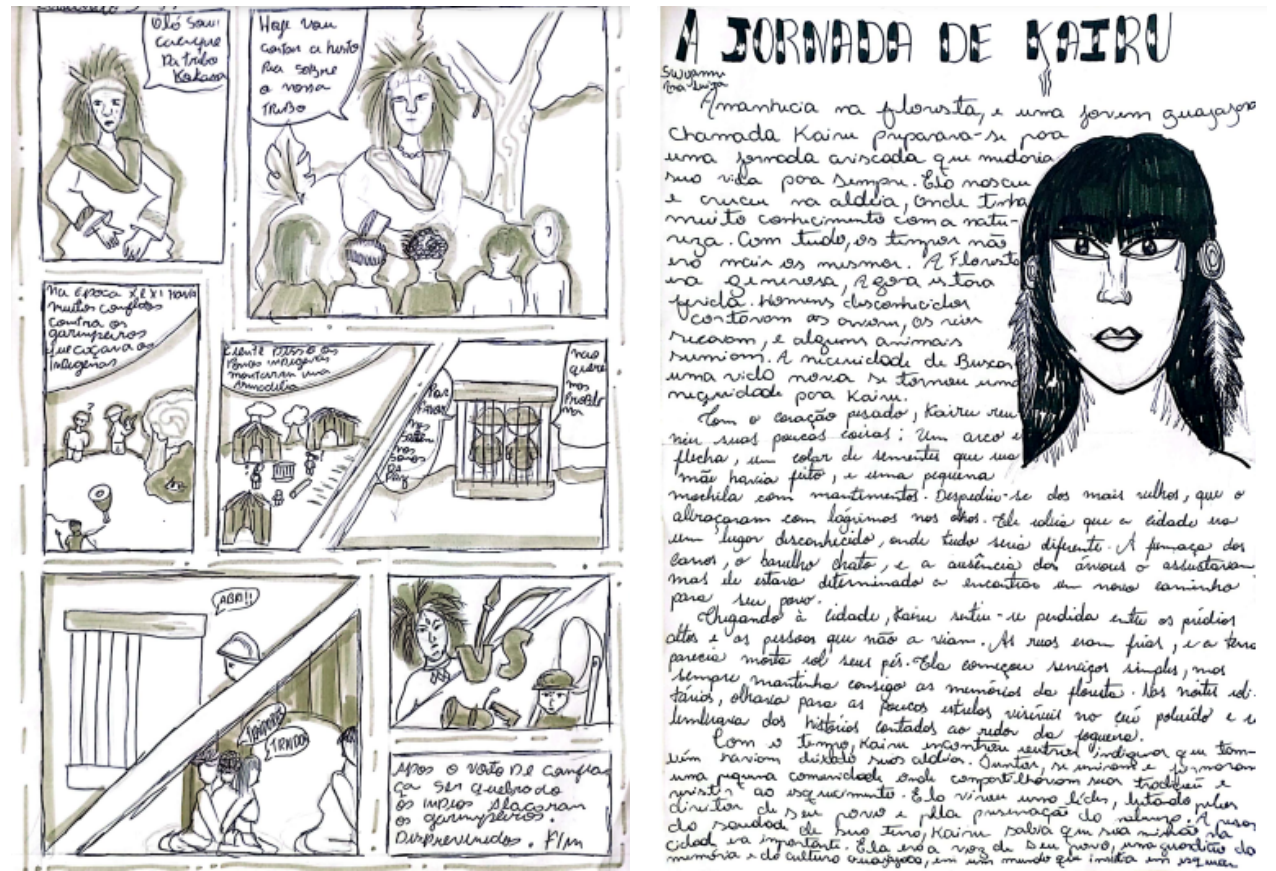 Olá sou
cacique
Da tribo
Kakawa
Hoje vou
contar a histo
Ria sobre
a nossa
TRIBO
Na época XIXI Havia
muitos conflitos
contra os
garimpeiros
que caçava os
indigenas
ciente disso os
Povos indigenas
montaram uma
Armadilha
Por
Favor
nos
soltem
nos
somos
Da
Paz
não
quere
mos
Proble
ma
ABRI!!
TRAIDORES
TRAIDOR
VS
Apos o voto De confian
ça ser quebrado
os indios atacaram
os garimpeiros.
Desprevenidos. Fim
A JORNADA DE KAIRU
Ana Luiza
Amanhecia na floresta, e uma jovem guajajara
chamada Kairu preparava-se para
uma jornada ariscada que mudaria
sua vida para sempre. Ela nasceu
e cresceu na aldeia, onde tinha
muito conhecimento com a natu-
reza. Com tudo, os tempos não
era mais os mesmos. A Floresta
era generosa, Agora estava
ferida. Homens desconhecidos
cortavam as arvores, os rios
secavam, e alguns animais
sumiam. A necessidade de Buscar
uma vida nova se tornou uma
para Kairu.
Com o coração pesado, Kairu reu
niu suas poucas coisas: Um arco e
flecha, um colar de sementes que sua
mãe havia feito, e uma pequena
mochila com mantimentos. Despediu-se dos mais velhos, que o
abraçaram com lágrimas nos olhos. Ele sabia que a cidade era
um lugar desconhecido, onde tudo seria diferente. A fumaça dos
carros, o barulho chato, e a ausência das árvores o assustavam
mas ele estava determinado a encontrar um novo caminho
para seu povo.
Chegando à cidade, Kairu sentiu-se perdida entre os prédios
altos e as pessoas que não a viam. As ruas eram frias, e a terra
parecia morta sob seus pés. Ela começou serviços simples, mas
sempre mantinha consigo as memórias da floresta. Nas noites soli-
tárias, olhava para as poucas estrelas visíveis no céu poluído e se
lembrava das histórias contadas ao redor da fogueira.
Com o tempo, Kairu encontrou outros indígenas que tam-
bém haviam deixado suas aldeias. Juntos, se uniram e formaram
uma pequena comunidade onde compartilhavam suas tradições e
resistir ao esquecimento. Ela virou uma líder, lutando pelos
direitos de seu povo e pela preservação da natureza. A pesar
da saudade de sua terra, Kairu sabia que sua missão na
cidade era importante. Ela era a voz de seu povo, uma guardiã da
memória e da cultura Guajajara, em um mundo que insistia em esquecer